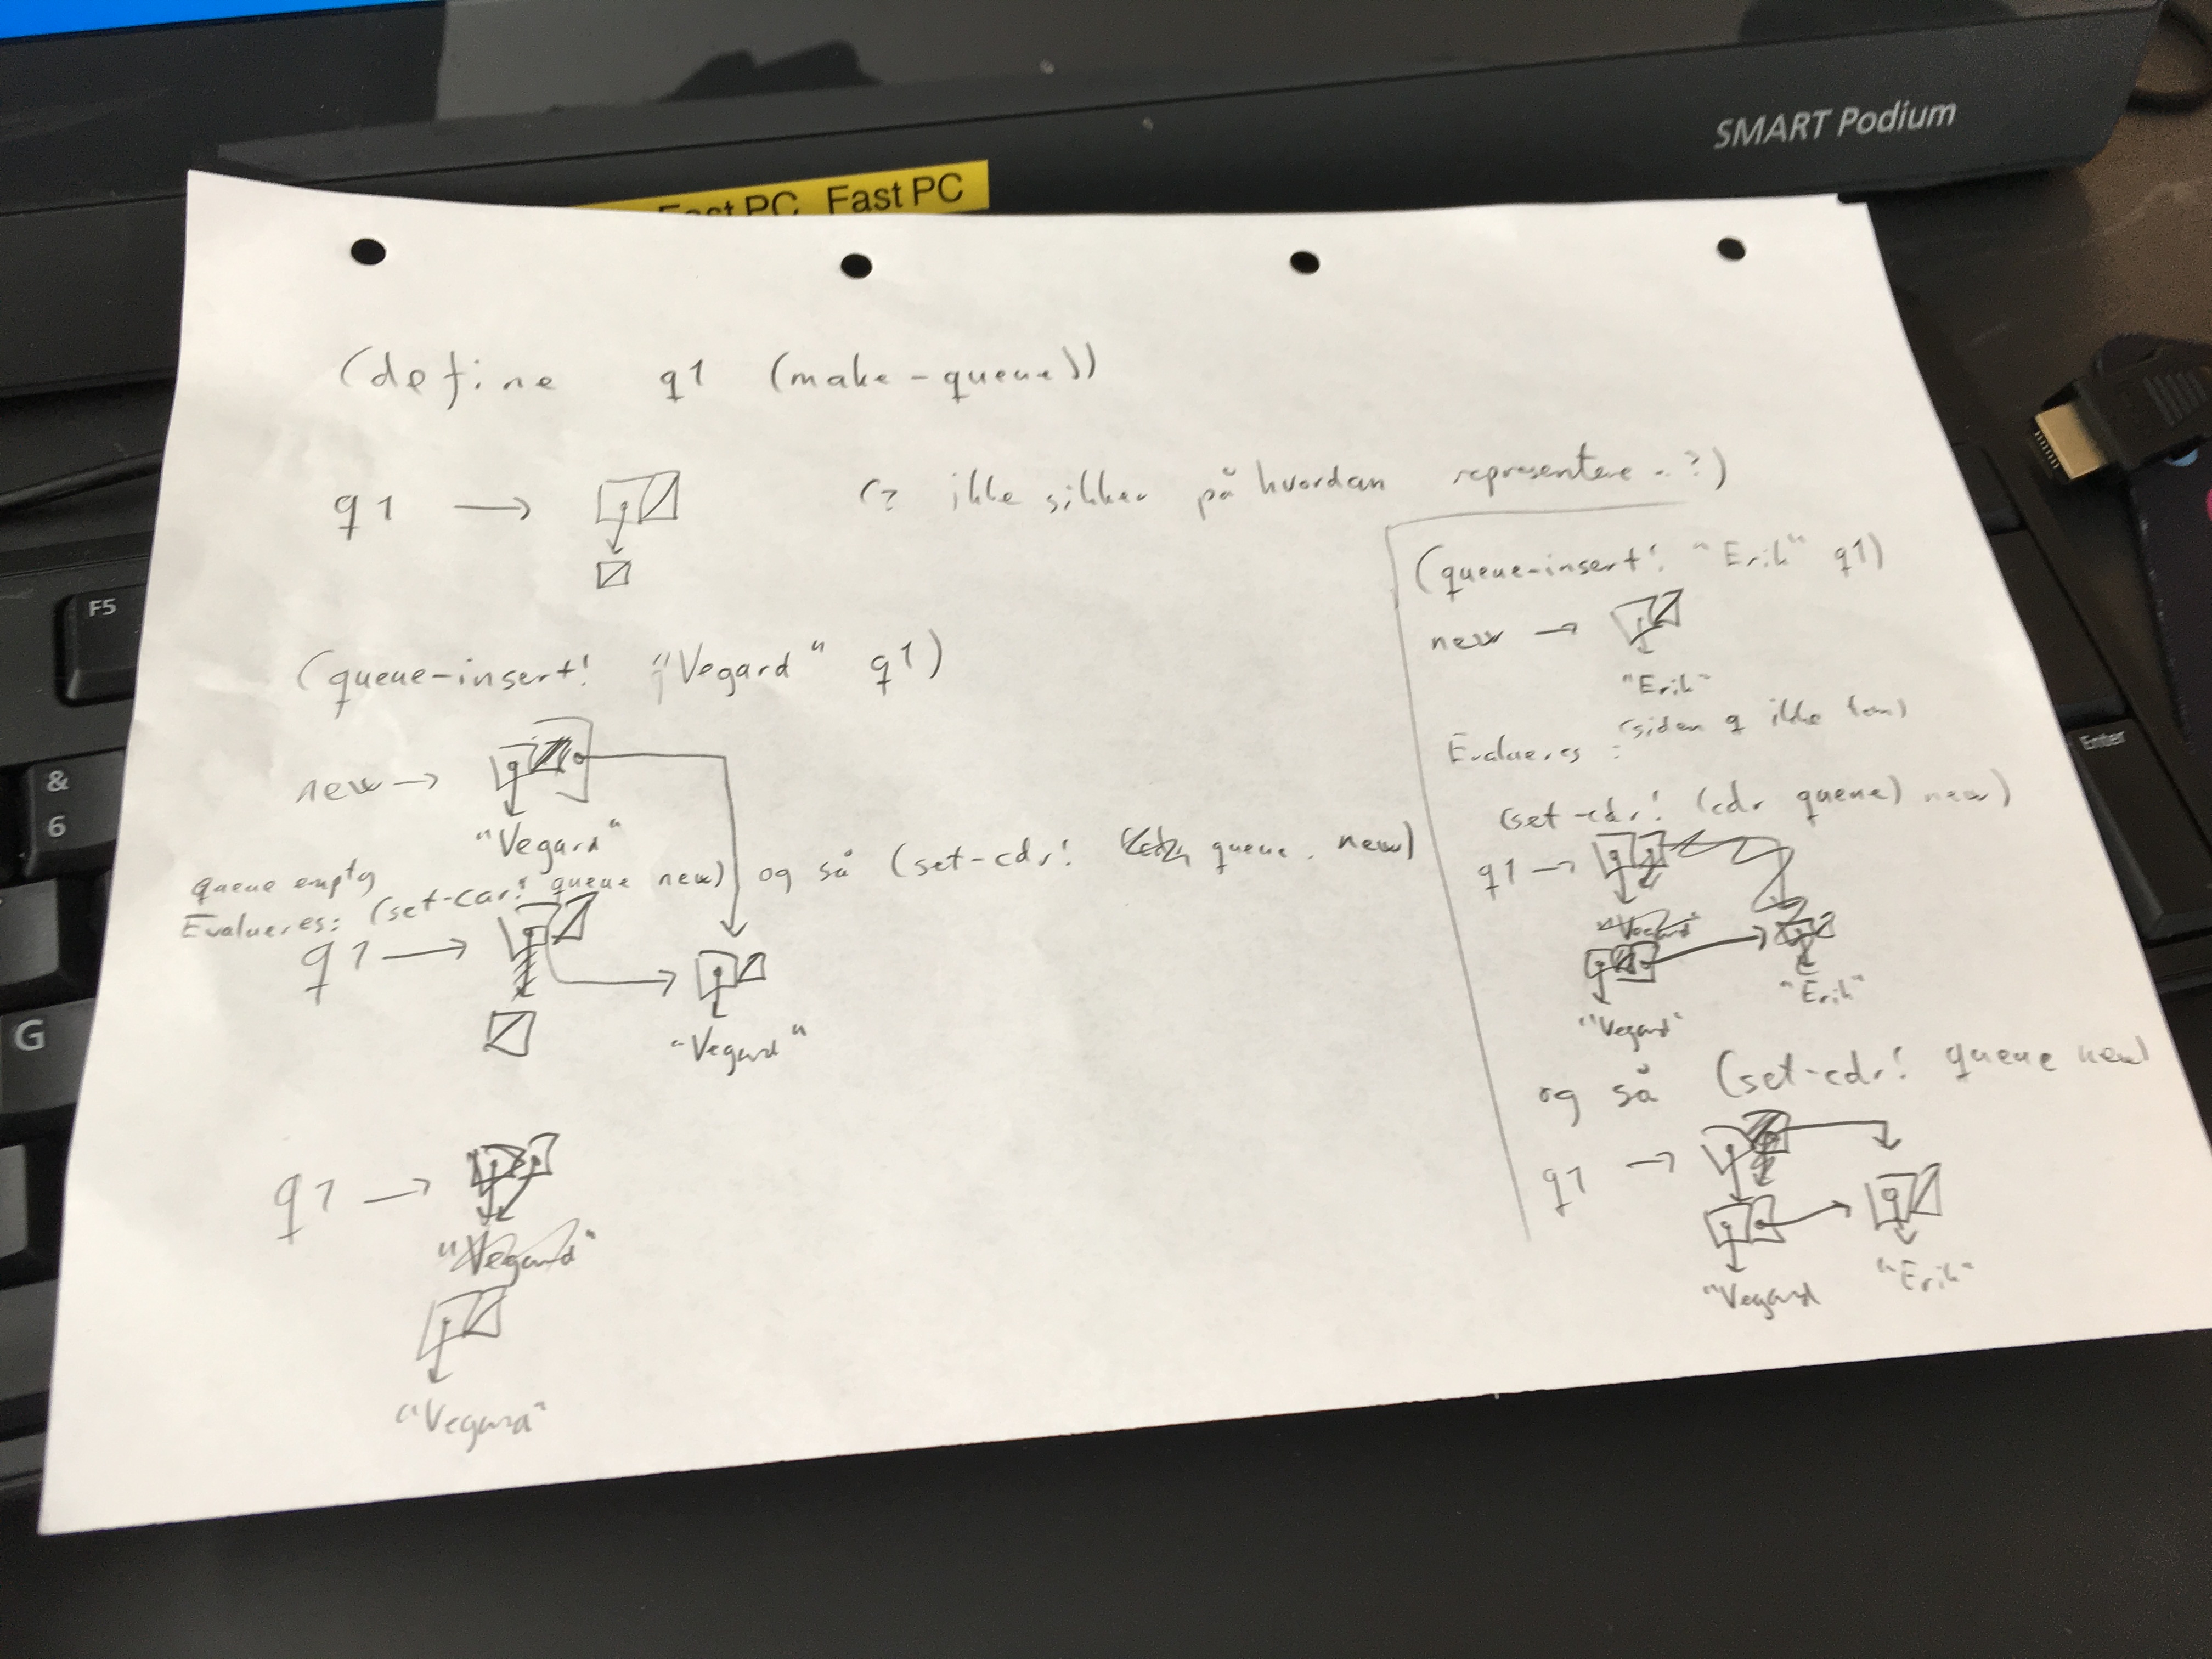 SMART Podium
Fast PC Fast PC
F5
&
6
G
Enter
(define q1 (make-queue))
q1 → (? ikke sikker på hvordan representere..?)
(queue-insert! "Vegard" q1)
new →
"Vegard"
queue empty
Evalueres: (set-car! queue new) og så (set-cdr! queue new)
q1 →
"Vegard"
q1 →
"Vegard"
"Vegard"
(queue-insert! "Erik" q1)
new →
"Erik"
Evalueres: (siden q ikke tom)
(set-cdr! (cdr queue) new)
q1 →
"Vegard"
"Vegard" "Erik"
og så (set-cdr! queue new)
q1 →
"Vegard "Erik"